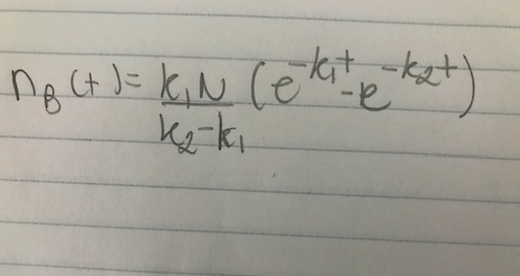 n_B(t) = \frac{k_1 N}{k_2 - k_1} (e^{-k_1 t} - e^{-k_2 t})